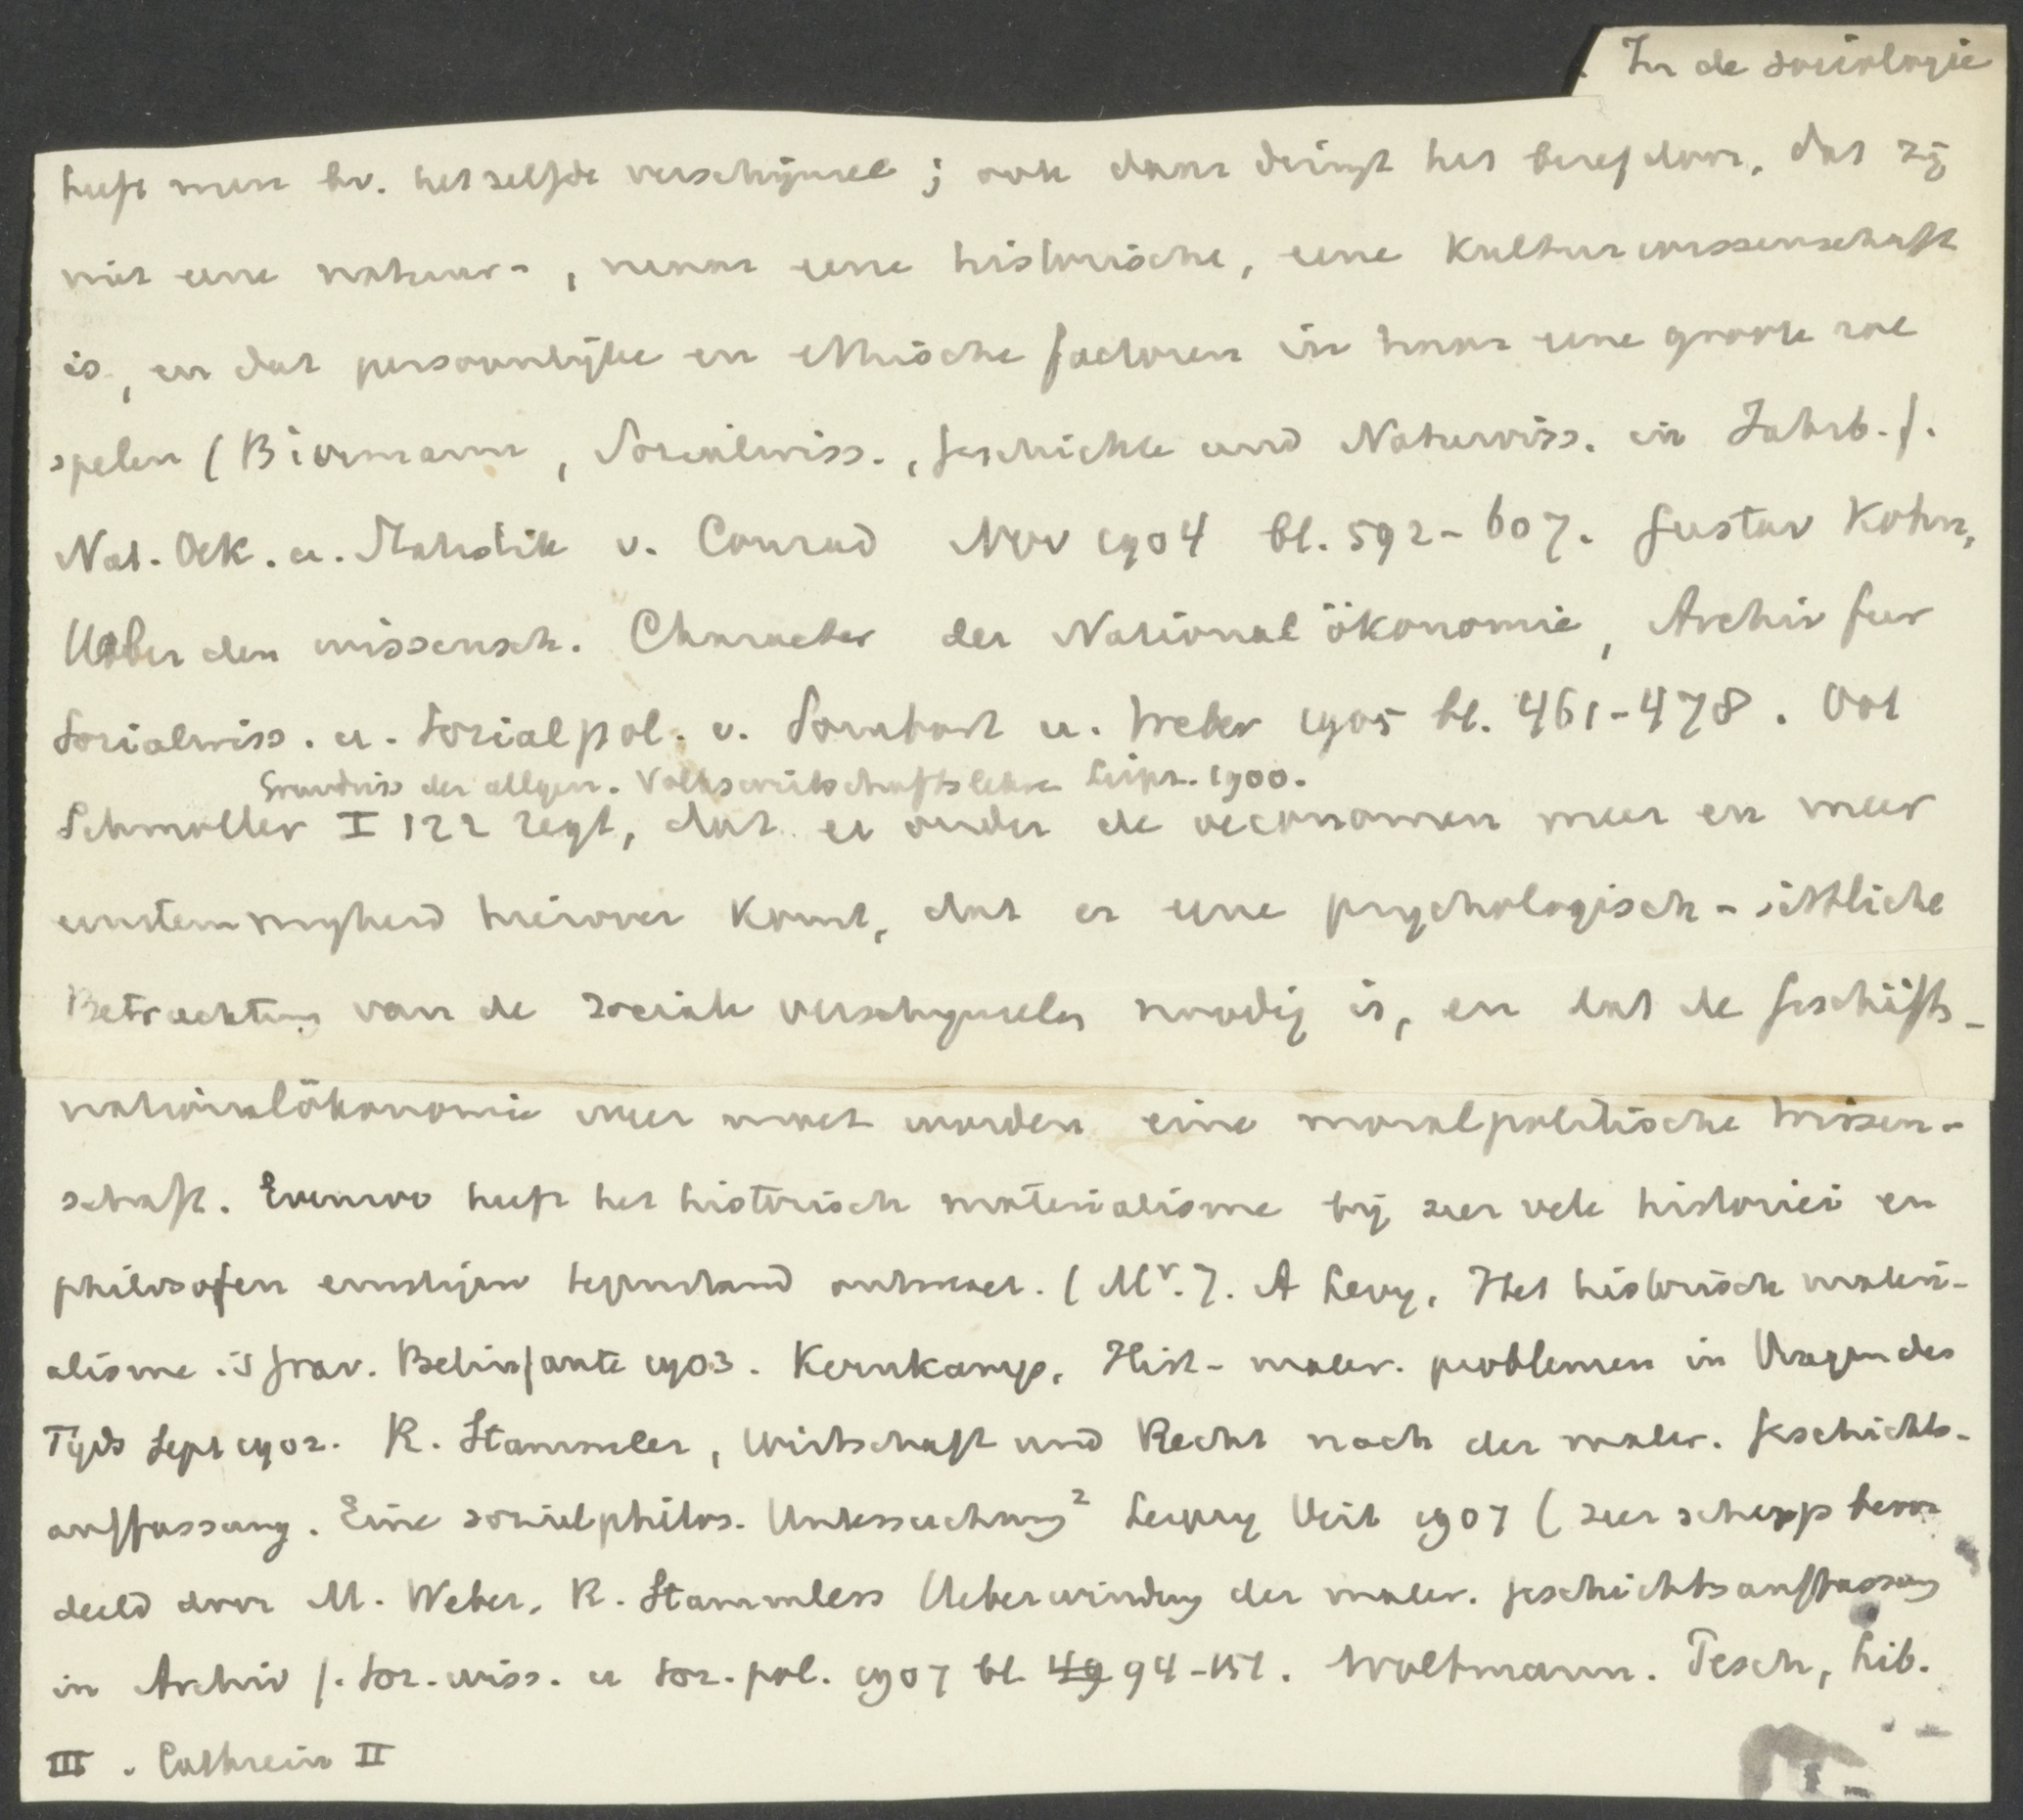 In de sociologie
heeft men bv. hetzelfde verschijnsel ; ook daar dringt het besef door, dat zij
niet eene natuur-, maar eene historische, eene Kulturwissenschaft
is, en dat persoonlijke en ethische factoren in haar eene groote rol
spelen (Biermann, Sozialwiss., Geschichte und Naturwiss. in Jahrb. f.
Nat. Oek. u. Statistik v. Conrad Nov 1904 bl. 592-607. Gustav Kohn,
Ueber den wissensch. Character der Nationalökonomie, Archiv fur
Sozialwiss. u. Sozialpol. v. Sombart u. Weber 1905 bl. 461-478. Ook
Grundriss der allgem. Volkswirtschaftslehre Leipz. 1900.
Schmoller I 122 zegt, dat er onder de oeconomen meer en meer
eenstemmigheid hierover komt, dat er eene psychologisch-sittliche
Betrachtung van de sociale verschijnselen noodig is, en dat de Geschäfts-
nationalökonomie weer moet worden eine moralpolitische Wissen-
schaft. Evenzoo heeft het historisch materialisme bij zeer vele historici en
philosofen ernstigen tegenstand ontmoet. (Mr. J. A Levy, Het historisch materi-
alisme. 's Grav. Belinfante 1903. Kernkamp, Hist-mater. problemen in Vragen des
Tijds Sept 1902. R. Stammler, Wirtschaft und Recht nach der mater. Geschichts-
auffassung. Eine sozialphilos. Untersuchung² Leipzig Veit 1907 (zeer scherp beoor
deeld door M. Weber, R. Stammlers Ueberwindung der mater. Geschichtsauffassung
in Archiv f. Soz. wiss. u Soz. pol. 1907 bl. 49 94-151. Woltmann. Pesch, Lib.
III. Cathrein II